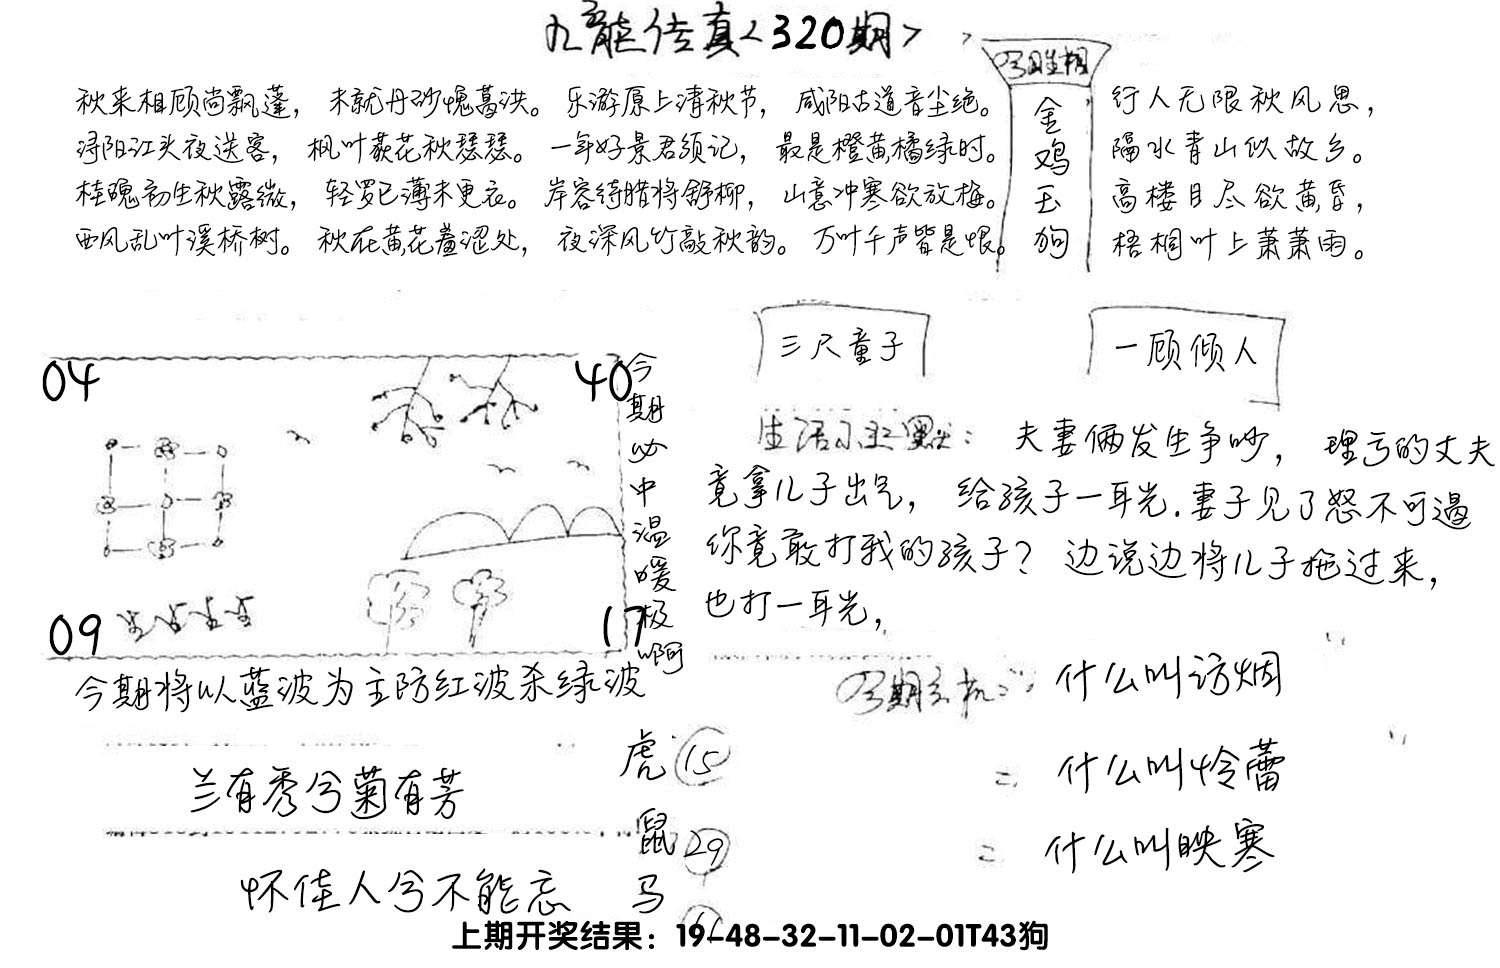 九龙传真<320期>
今日生相
秋来相顾尚飘蓬，未就丹砂愧葛洪。乐游原上清秋节，咸阳古道音尘绝。
浔阳江头夜送客，枫叶荻花秋瑟瑟。一年好景君须记，最是橙黄橘绿时。
桂魄初生秋露微，轻罗已薄未更衣。岸容待腊将舒柳，山意冲寒欲放梅。
西风乱叶溪桥树。秋在黄花羞涩处，夜深风竹敲秋韵。万叶千声皆是恨。
金鸡玉狗
行人无限秋风思，
隔水青山似故乡。
高楼目尽欲黄昏，
梧桐叶上萧萧雨。
三尺童子
一顾倾人
04
40
09
17
今期必中温暖极啊
生活小幽默：夫妻俩发生争吵，理亏的丈夫
竟拿儿子出气，给孩子一耳光.妻子见了怒不可遏
你竟敢打我的孩子？边说边将儿子拖过来，
也打一耳光，
今期将以蓝波为主防红波杀绿波
今期玄机：什么叫访烟
二 什么叫怜蕾
二 什么叫映寒
兰有秀兮菊有芳
怀佳人兮不能忘
虎 15
鼠 29
马
上期开奖结果：19-48-32-11-02-01T43狗